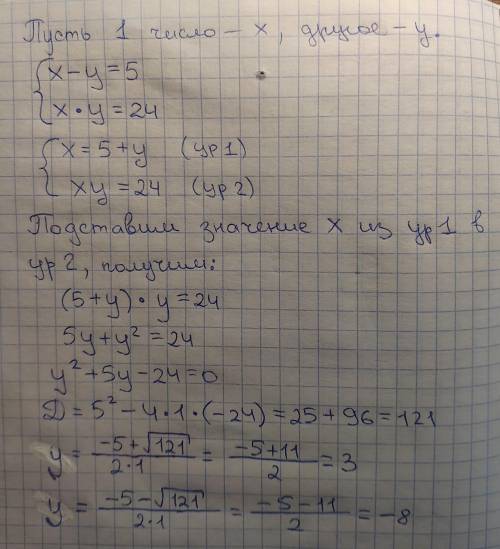 Пусть 1 число – x, другое – y.
{ x – y = 5
x · y = 24
{ x = 5 + y (ур 1)
xy = 24 (ур 2)
Подставим значение x из ур 1 в
ур 2, получим:
(5 + y) · y = 24
5y + y² = 24
y² + 5y – 24 = 0
D = 5² – 4 · 1 · (–24) = 25 + 96 = 121
y = (–5 + √121) / (2 · 1) = (–5 + 11) / 2 = 3
y = (–5 – √121) / (2 · 1) = (–5 – 11) / 2 = –8